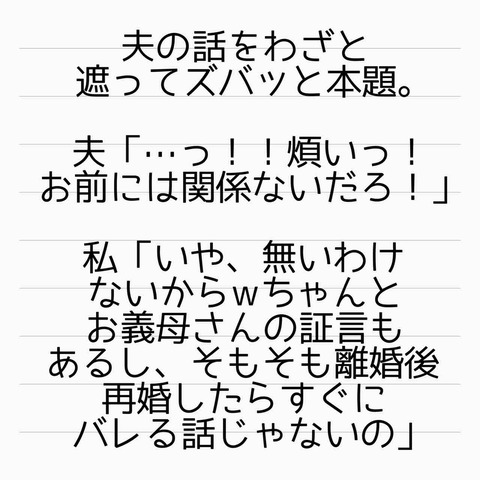 夫の話をわざと
遮ってズバッと本題。
夫「…っ！！煩いっ！
お前には関係ないだろ！」
私「いや、無いわけ
ないからwちゃんと
お義母さんの証言も
あるし、そもそも離婚後
再婚したらすぐに
バレる話じゃないの」